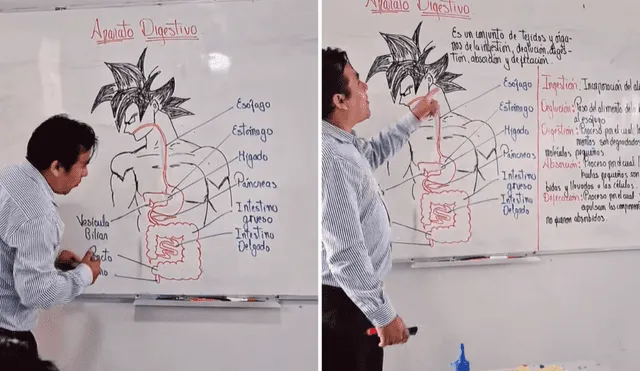 Aparato Digestivo
Esófago
Estómago
Hígado
Páncreas
Intestino
grueso
Intestino
Delgado
Vesícula
Biliar
Recto
Aparato Digestivo
Es un conjunto de tejidos y órga-
nos de la ingestión, deglución, diges-
tión, absorción y defecación.
Esófago
Estómago
Hígado
Páncreas
Intestino
grueso
Intestino
Delgado
Ingestión: Incorporación del
Deglución: Paso del alimento de
al esófago
Digestión: Proceso por el cual
mentos son degradados
moléculas pequeñas.
Absorción: Proceso por el cual
pequeñas son
bidas y llevadas a las células.
Defecación: Proceso por el cual
expulsan los
no fueron absorbidos.